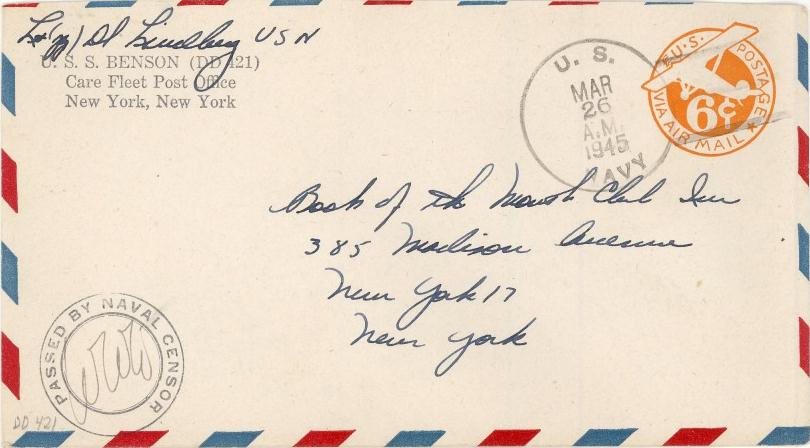 Lt (jg) D L Lindberg USN
U. S. S. BENSON (DD 421)
Care Fleet Post Office
New York, New York
U. S.
MAR
26
A.M.
1945
NAVY
U.S. POSTAGE
6¢
VIA AIR MAIL
Book of the Month Club Inc
385 Madison Avenue
New York 17
New York
PASSED BY NAVAL CENSOR
DD 421